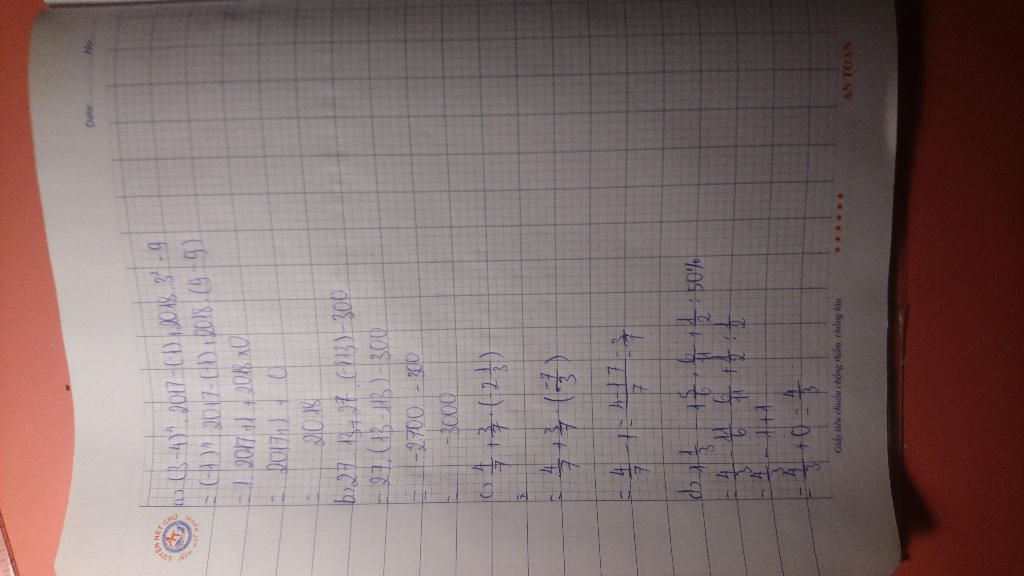 Date No
LUYỆN NÉT CHỮ
a) (3-4)⁴ . 2017 - (-1) + 2018 . 3² - 9
= (-1)⁴ . 2017 - (-1) + 2018 . (9 - 9)
= 1 . 2017 + 1 + 2018 x 0
= 2017 + 1 + 0
= 2018
b) 27 . 13 + 27 . (-113) - 300
= 27 . (13 - 113) - 300
= -2700 - 300
= -3000
c) 4/7 + 3/7 . (-2 1/3)
= 4/7 + 3/7 . (-7/3)
= 4/7 - 1 = 4-7/7 = -3/7
d) 1 1/3 - 1 5/6 . 6/11 + 1/2 : 50%
= 4/3 - 11/6 . 6/11 + 1/2 : 1/2
= 4/3 - 1 + 1
= 4/3 + 0 = 4/3
Giấy tiêu chuẩn chống thấm, chống lóa
★★★★★★
AN TOÀN